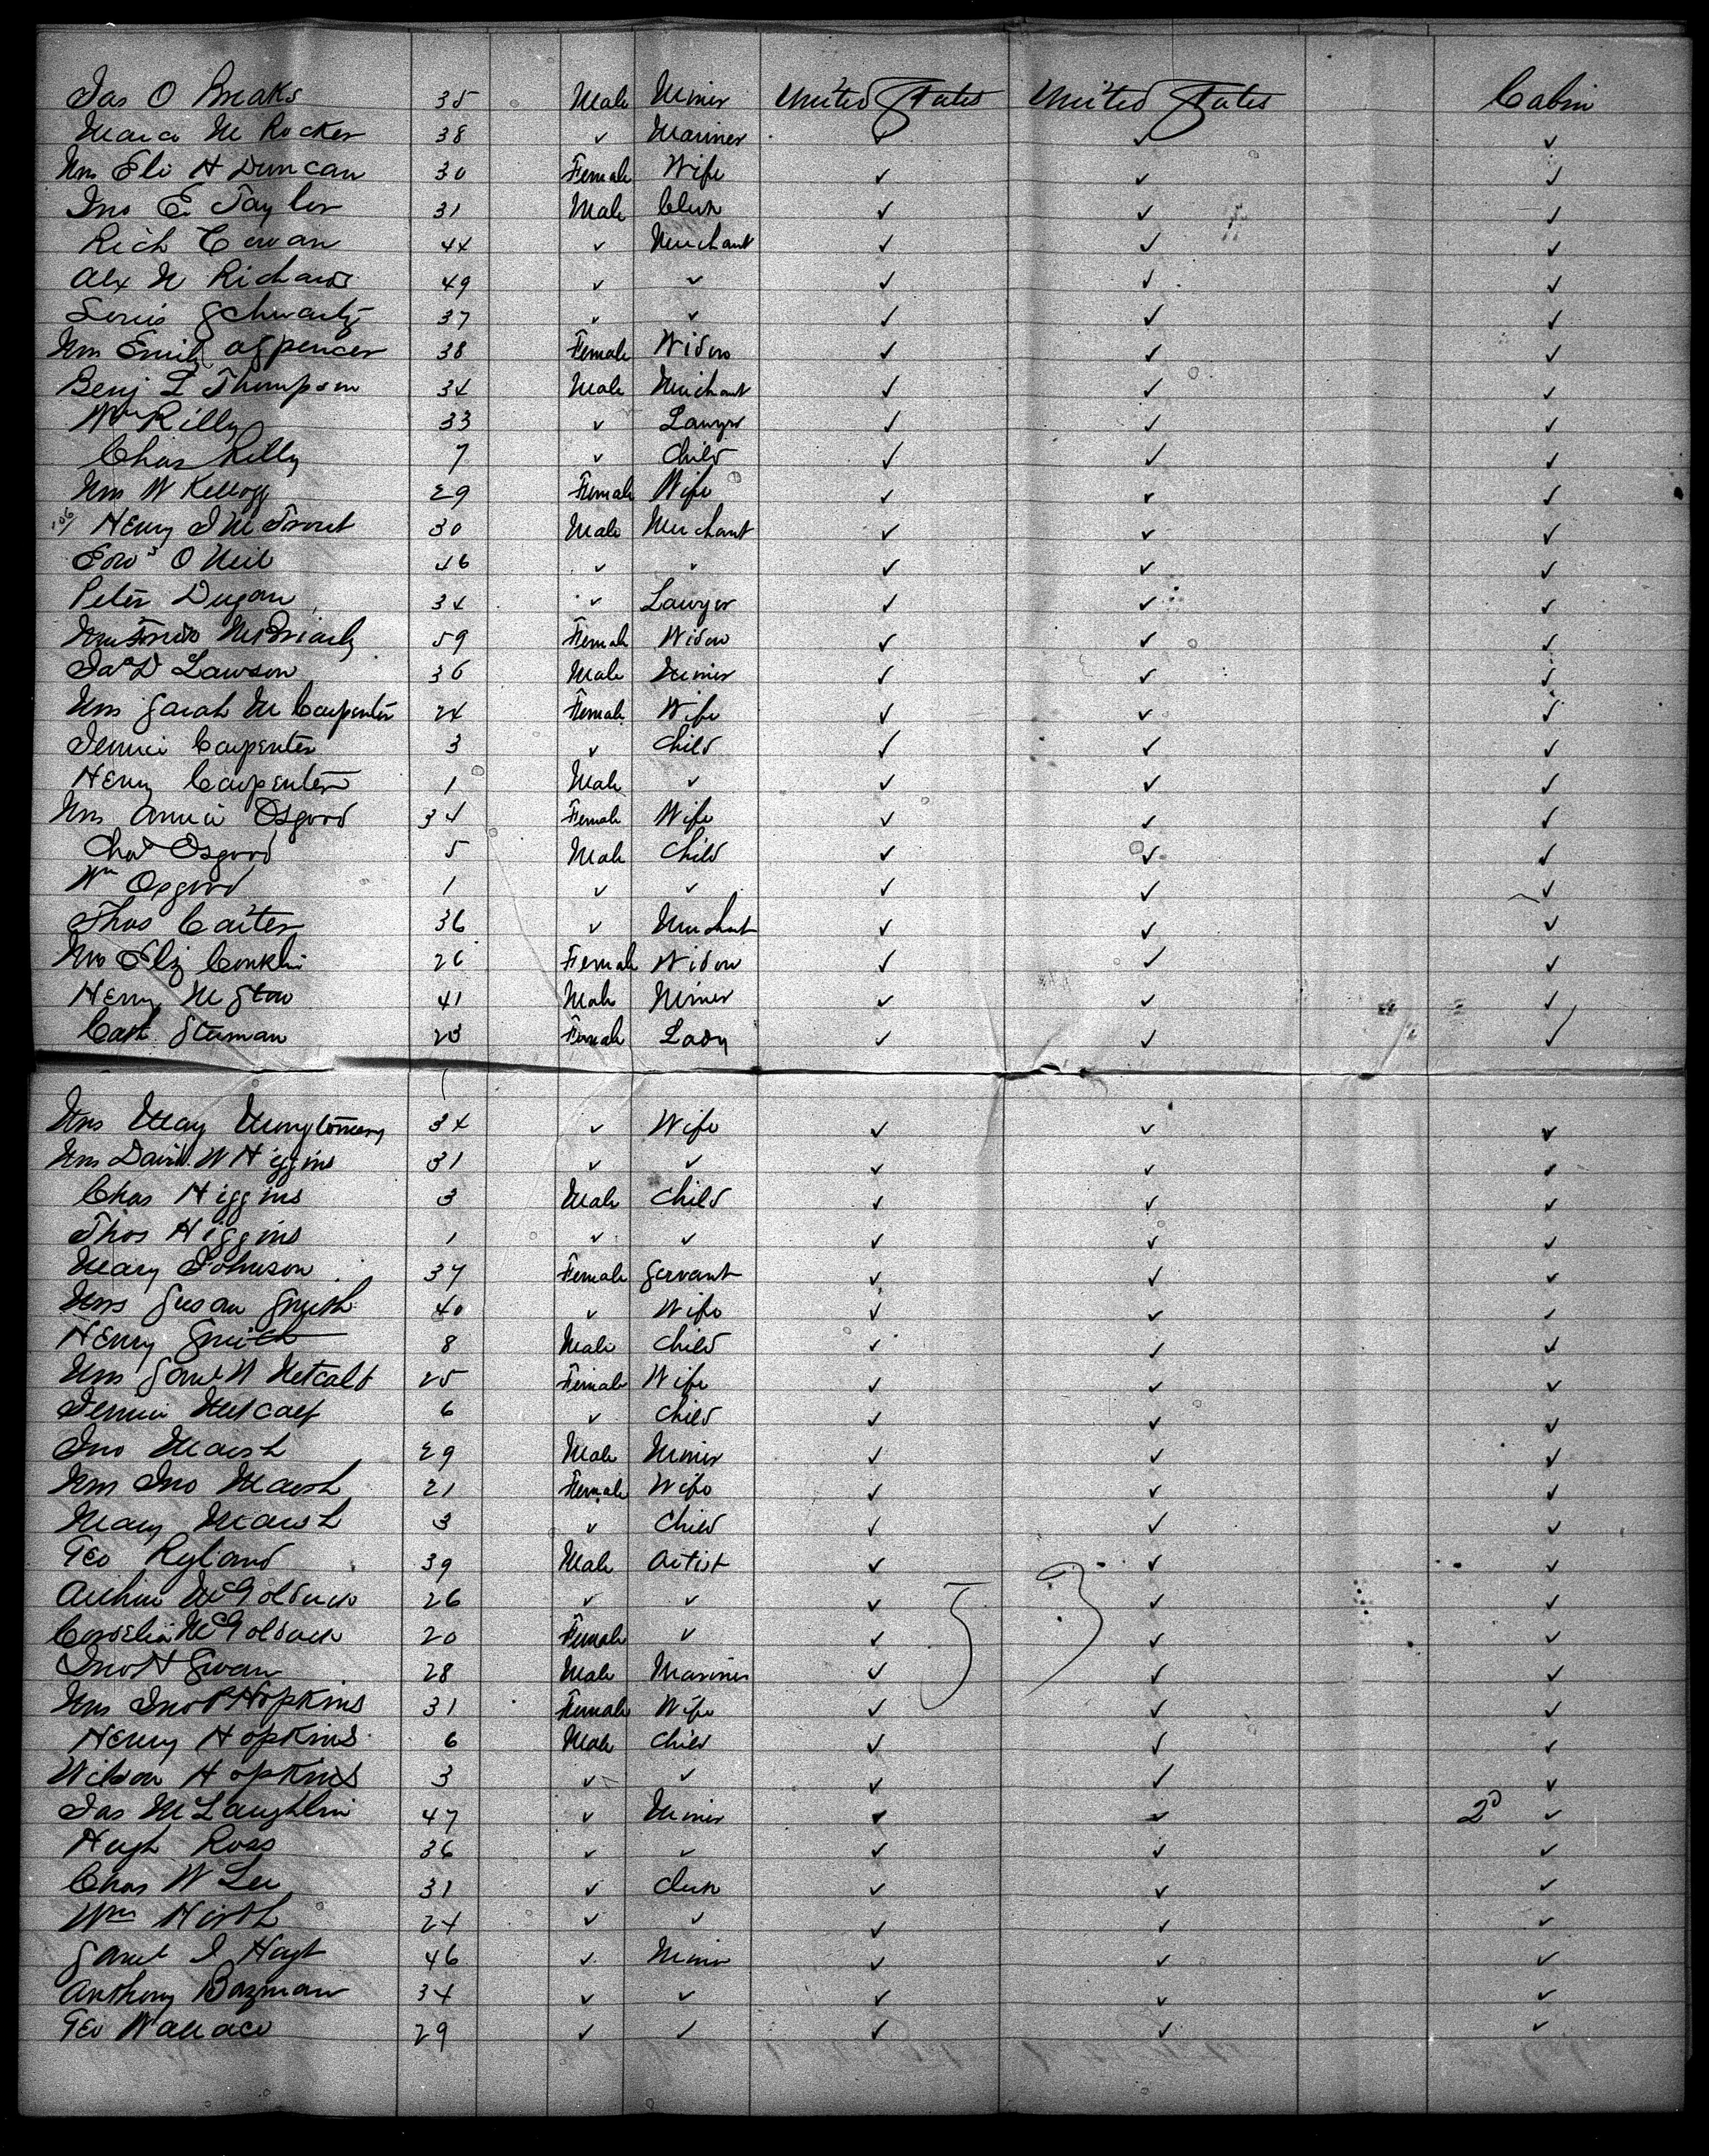 Jas O Breaks 35 Male Miner United States United States Cabin
M Rocker 38 ✓ Mariner ✓ ✓ ✓
Mrs Eli H Duncan 30 Female Wife ✓ ✓ ✓
Jno E Taylor 31 Male Clerk ✓ ✓ ✓
Rich Cowan 44 ✓ Merchant ✓ ✓ ✓
Alex W Richards 49 ✓ ✓ ✓ ✓ ✓
Louis Schwartz 37 ✓ ✓ ✓ ✓ ✓
Mrs Emily A Spencer 38 Female Widow ✓ ✓ ✓
Benj L Thompson 34 Male Merchant ✓ ✓ ✓
Wm Rilly 33 ✓ Lawyer ✓ ✓ ✓
Chas Rilly 7 ✓ Child ✓ ✓ ✓
Mrs W Kellogg 29 Female Wife ✓ ✓ ✓
Henry J M Trout 30 Male Merchant ✓ ✓ ✓
Edwd O Neil 46 ✓ ✓ ✓ ✓ ✓
Peter Dugan 34 ✓ Lawyer ✓ ✓ ✓
59 Female Widow ✓ ✓ ✓
Jas D Lawson 36 Male Miner ✓ ✓ ✓
Mrs Sarah M Carpenter 24 Female Wife ✓ ✓ ✓
Jennie Carpenter 3 ✓ Child ✓ ✓ ✓
Henry Carpenter 1 Male ✓ ✓ ✓ ✓
Mrs Annie Osgood 34 Female Wife ✓ ✓ ✓
Chas Osgood 5 Male Child ✓ ✓ ✓
Wm Osgood 1 ✓ ✓ ✓ ✓ ✓
Thos Carter 36 ✓ Merchant ✓ ✓ ✓
Mrs Eliz Conklin 26 Female Widow ✓ ✓ ✓
Henry M Stow 41 Male Miner ✓ ✓ ✓
Cath Sterman 23 Female Lady ✓ ✓ ✓
Mrs Mary Mongtomery 34 ✓ Wife ✓ ✓ ✓
Mrs David W Higgins 31 ✓ ✓ ✓ ✓ ✓
Chas Higgins 3 Male Child ✓ ✓ ✓
Thos Higgins 1 ✓ ✓ ✓ ✓ ✓
Mary Johnson 37 Female Servant ✓ ✓ ✓
Mrs Susan Smith 40 ✓ Wife ✓ ✓ ✓
Henry Smith 8 Male Child ✓ ✓ ✓
Mrs Saml W Metcalf 25 Female Wife ✓ ✓ ✓
Jennie Metcalf 6 ✓ Child ✓ ✓ ✓
Jno Marsh 29 Male Miner ✓ ✓ ✓
Mrs Jno Marsh 21 Female Wife ✓ ✓ ✓
Mary Marsh 3 ✓ Child ✓ ✓ ✓
Geo Ryland 39 Male Artist ✓ ✓ ✓
Arthur McGoldrick 26 ✓ ✓ ✓ ✓ ✓
Cordelia McGoldrick 20 Female ✓ ✓ ✓ ✓
Jno H Swan 28 Male Mariner ✓ ✓ ✓
Mrs Jno P Hopkins 31 Female Wife ✓ ✓ ✓
Henry Hopkins 6 Male Child ✓ ✓ ✓
Wilson Hopkins 3 ✓ ✓ ✓ ✓ ✓
Jas McLaughlin 47 ✓ Miner ✓ ✓ 2d ✓
Hugh Ross 36 ✓ ✓ ✓ ✓ ✓
Chas W Lee 31 ✓ Clerk ✓ ✓ ✓
Wm Hirth 24 ✓ ✓ ✓ ✓ ✓
Saml J Hoyt 46 ✓ Miner ✓ ✓ ✓
Anthony Bozman 34 ✓ ✓ ✓ ✓ ✓
Geo Wallace 29 ✓ ✓ ✓ ✓ ✓
53